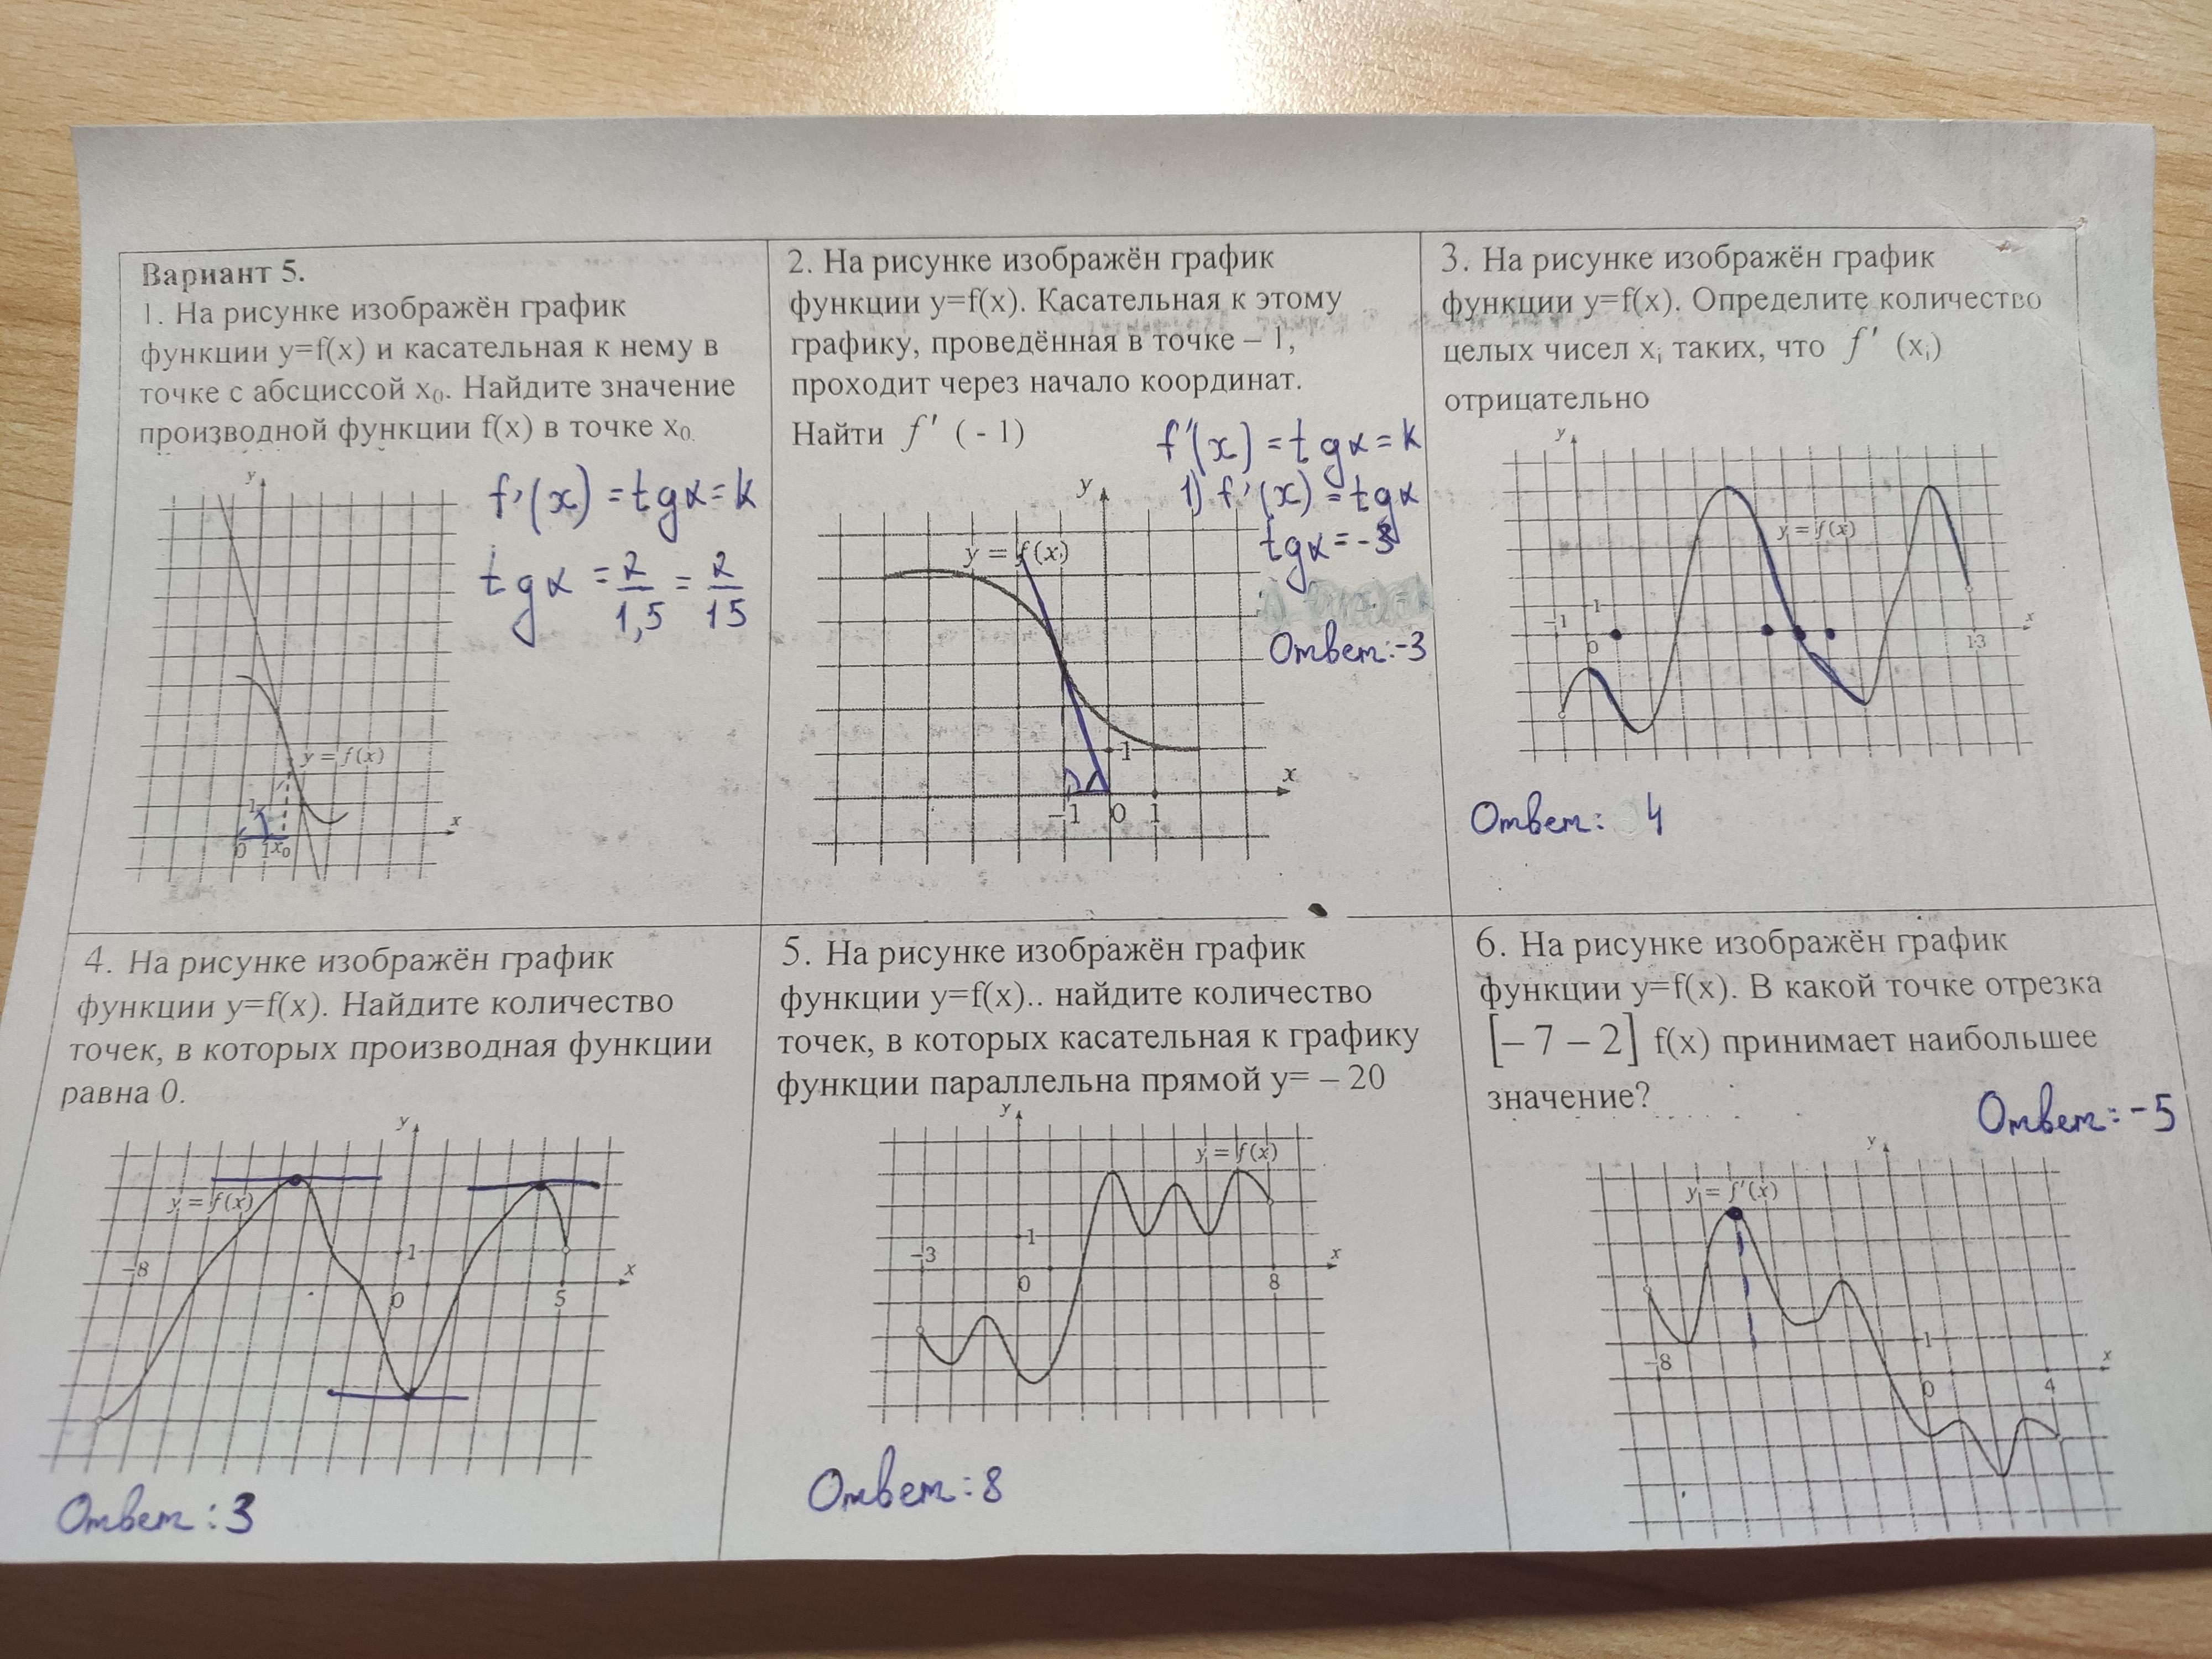 Вариант 5.
1. На рисунке изображён график
функции y=f(x) и касательная к нему в
точке с абсциссой x₀. Найдите значение
производной функции f(x) в точке x₀.
f'(x) = tgα = k
tgα = 2/1,5 = 2/15
y
y = f(x)
1
x
0 1 x₀
2. На рисунке изображён график
функции y=f(x). Касательная к этому
графику, проведённая в точке – 1,
проходит через начало координат.
Найти f' ( - 1)
f'(x) = tgα = k
1) f'(x) = tgα
tgα = -3
Ответ: -3
y
y = f(x)
1
x
-1 0 1
3. На рисунке изображён график
функции y=f(x). Определите количество
целых чисел xᵢ таких, что f' (xᵢ)
отрицательно
y
y = f(x)
-1 1
x
0 13
Ответ: 4
4. На рисунке изображён график
функции y=f(x). Найдите количество
точек, в которых производная функции
равна 0.
y
y = f(x)
1
-8 x
0 5
Ответ: 3
5. На рисунке изображён график
функции y=f(x).. найдите количество
точек, в которых касательная к графику
функции параллельна прямой y= – 20
y
y = f(x)
1
-3 x
0 8
Ответ: 8
6. На рисунке изображён график
функции y=f(x). В какой точке отрезка
[– 7 – 2] f(x) принимает наибольшее
значение?
Ответ: -5
y
y = f'(x)
1
-8 x
0 4